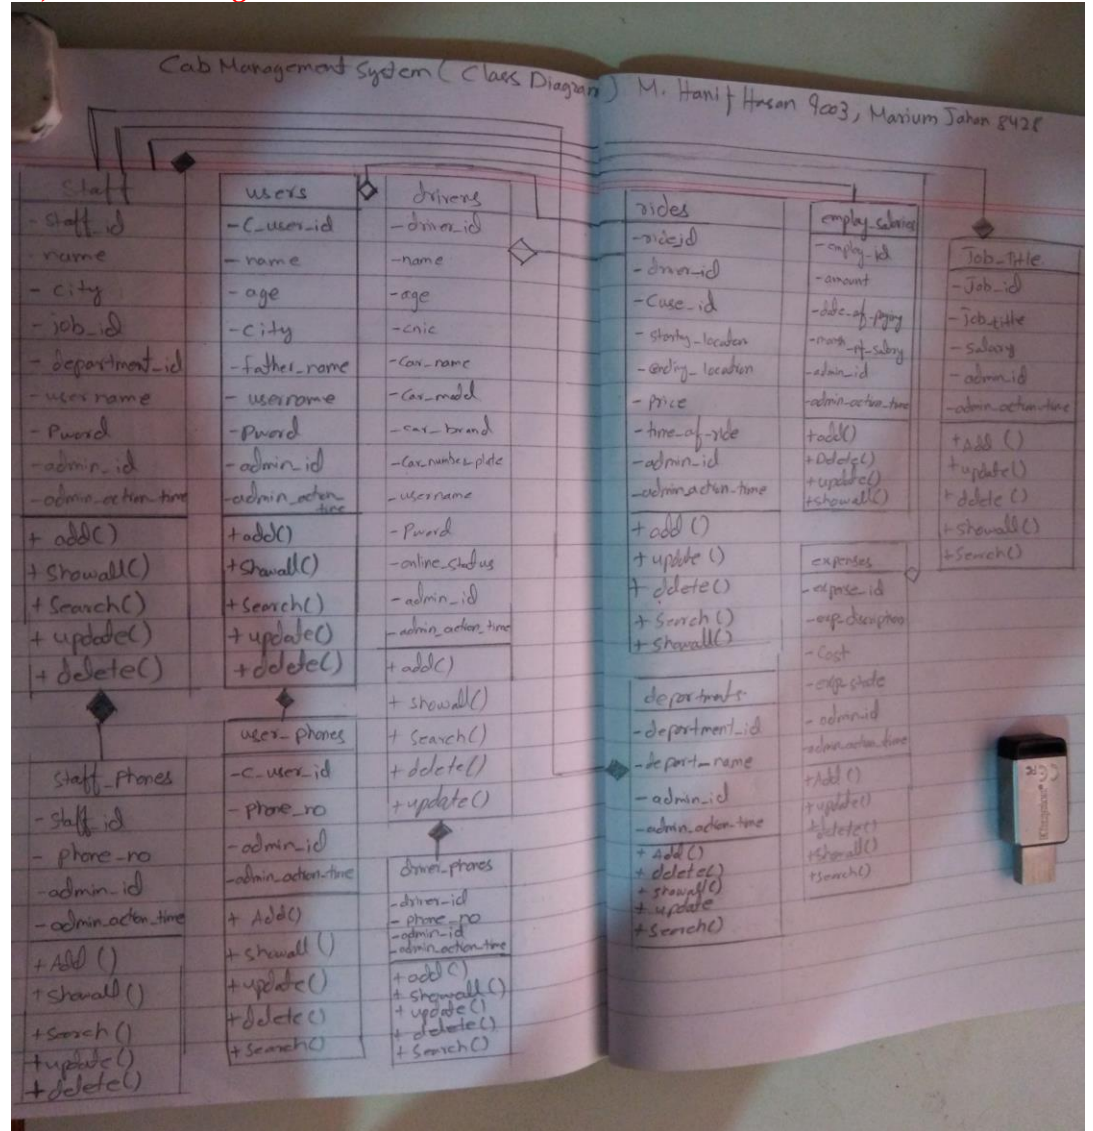 Cab Management System ( Class Diagram ) M. Hanif Hasan 9003, Marium Jahan 8428
Staff
- staff_id
- name
- city
- job_id
- department_id
- username
- Pword
- admin_id
- admin_action_time
+ add()
+ showall()
+ Search()
+ update()
+ delete()
staff_phones
- staff_id
- phone_no
- admin_id
- admin_action_time
+ Add ()
+ showall ()
+ Search ()
+ update()
+ delete()
users
- C_user_id
- name
- age
- City
- father_name
- username
- Pword
- admin_id
- admin_action_
time
+ add()
+ showall()
+ Search()
+ update()
+ delete()
user_phones
- C_user_id
- phone_no
- admin_id
- admin_action_time
+ Add()
+ showall ()
+ update()
+ delete ()
+ Search()
drivers
- driver_id
- name
- age
- cnic
- Car_name
- Car_model
- car_brand
- Car_number_plate
- username
- Pword
- online_status
- admin_id
- admin_action_time
+ add()
+ showall()
+ Search()
+ delete()
+ update()
driver_phones
- driver_id
- phone_no
- admin_id
- admin_action_time
+ add()
+ showall()
+ update()
+ delete()
+ Search()
rides
- ride_id
- driver_id
- Cuse_id
- starting_location
- ending_location
- Price
- time_of_ride
- admin_id
- admin_action_time
+ add ()
+ update ()
+ delete()
+ Search()
+ showall()
departments
- department_id
- depart_name
- admin_id
- admin_action_time
+ Add()
+ delete()
+ showall()
+ update
+ Search()
employ_salaries
- employ_id
- amount
- date_of_paying
- month_of_salary
- admin_id
- admin_action_time
+ add()
+ Delete()
+ update()
+ showall()
expenses
- expense_id
- exp_discription
- Cost
- admin_id
- admin_action_time
+ Add()
+ update()
+ delete()
+ showall()
+ Search()
Job_title
- Job_id
- job_title
- Salary
- admin_id
- admin_action_time
+ Add ()
+ update()
+ delete ()
+ showall()
+ Search()
Kingston